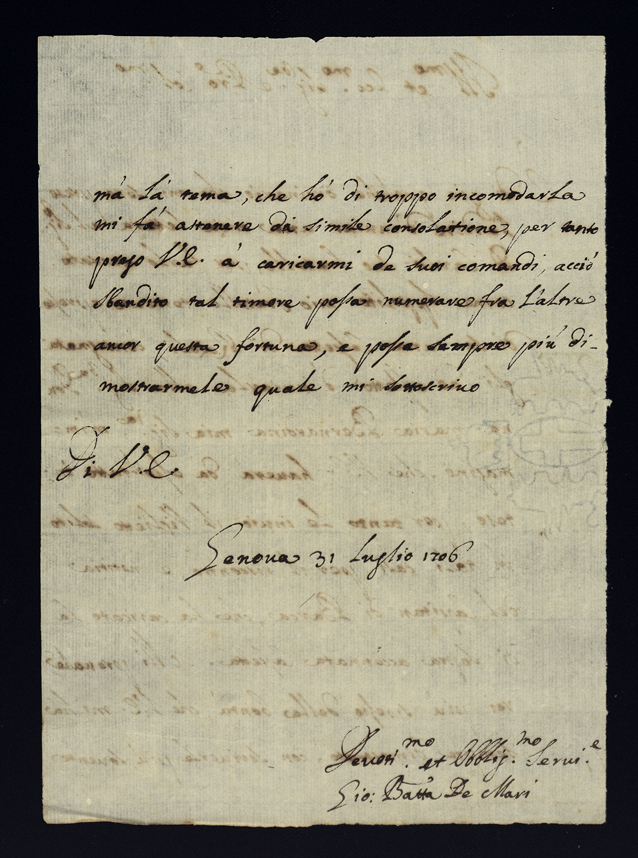 mà là tema, che hò di troppo incomodarla
mi fà astenere dà simile consolatione, per tanto
prego V.E. à caricarmi de suoi comandi, acciò
sbandito tal timore possa numerare frà l'altre
ancor questa fortuna, e possa sempre più di-
mostrarmele quale mi sottoscrivo
Di V.E.
Genova 31 Luglio 1706
Devoti.mo et Obblig.mo Servi.e
Gio: Batta De Mari